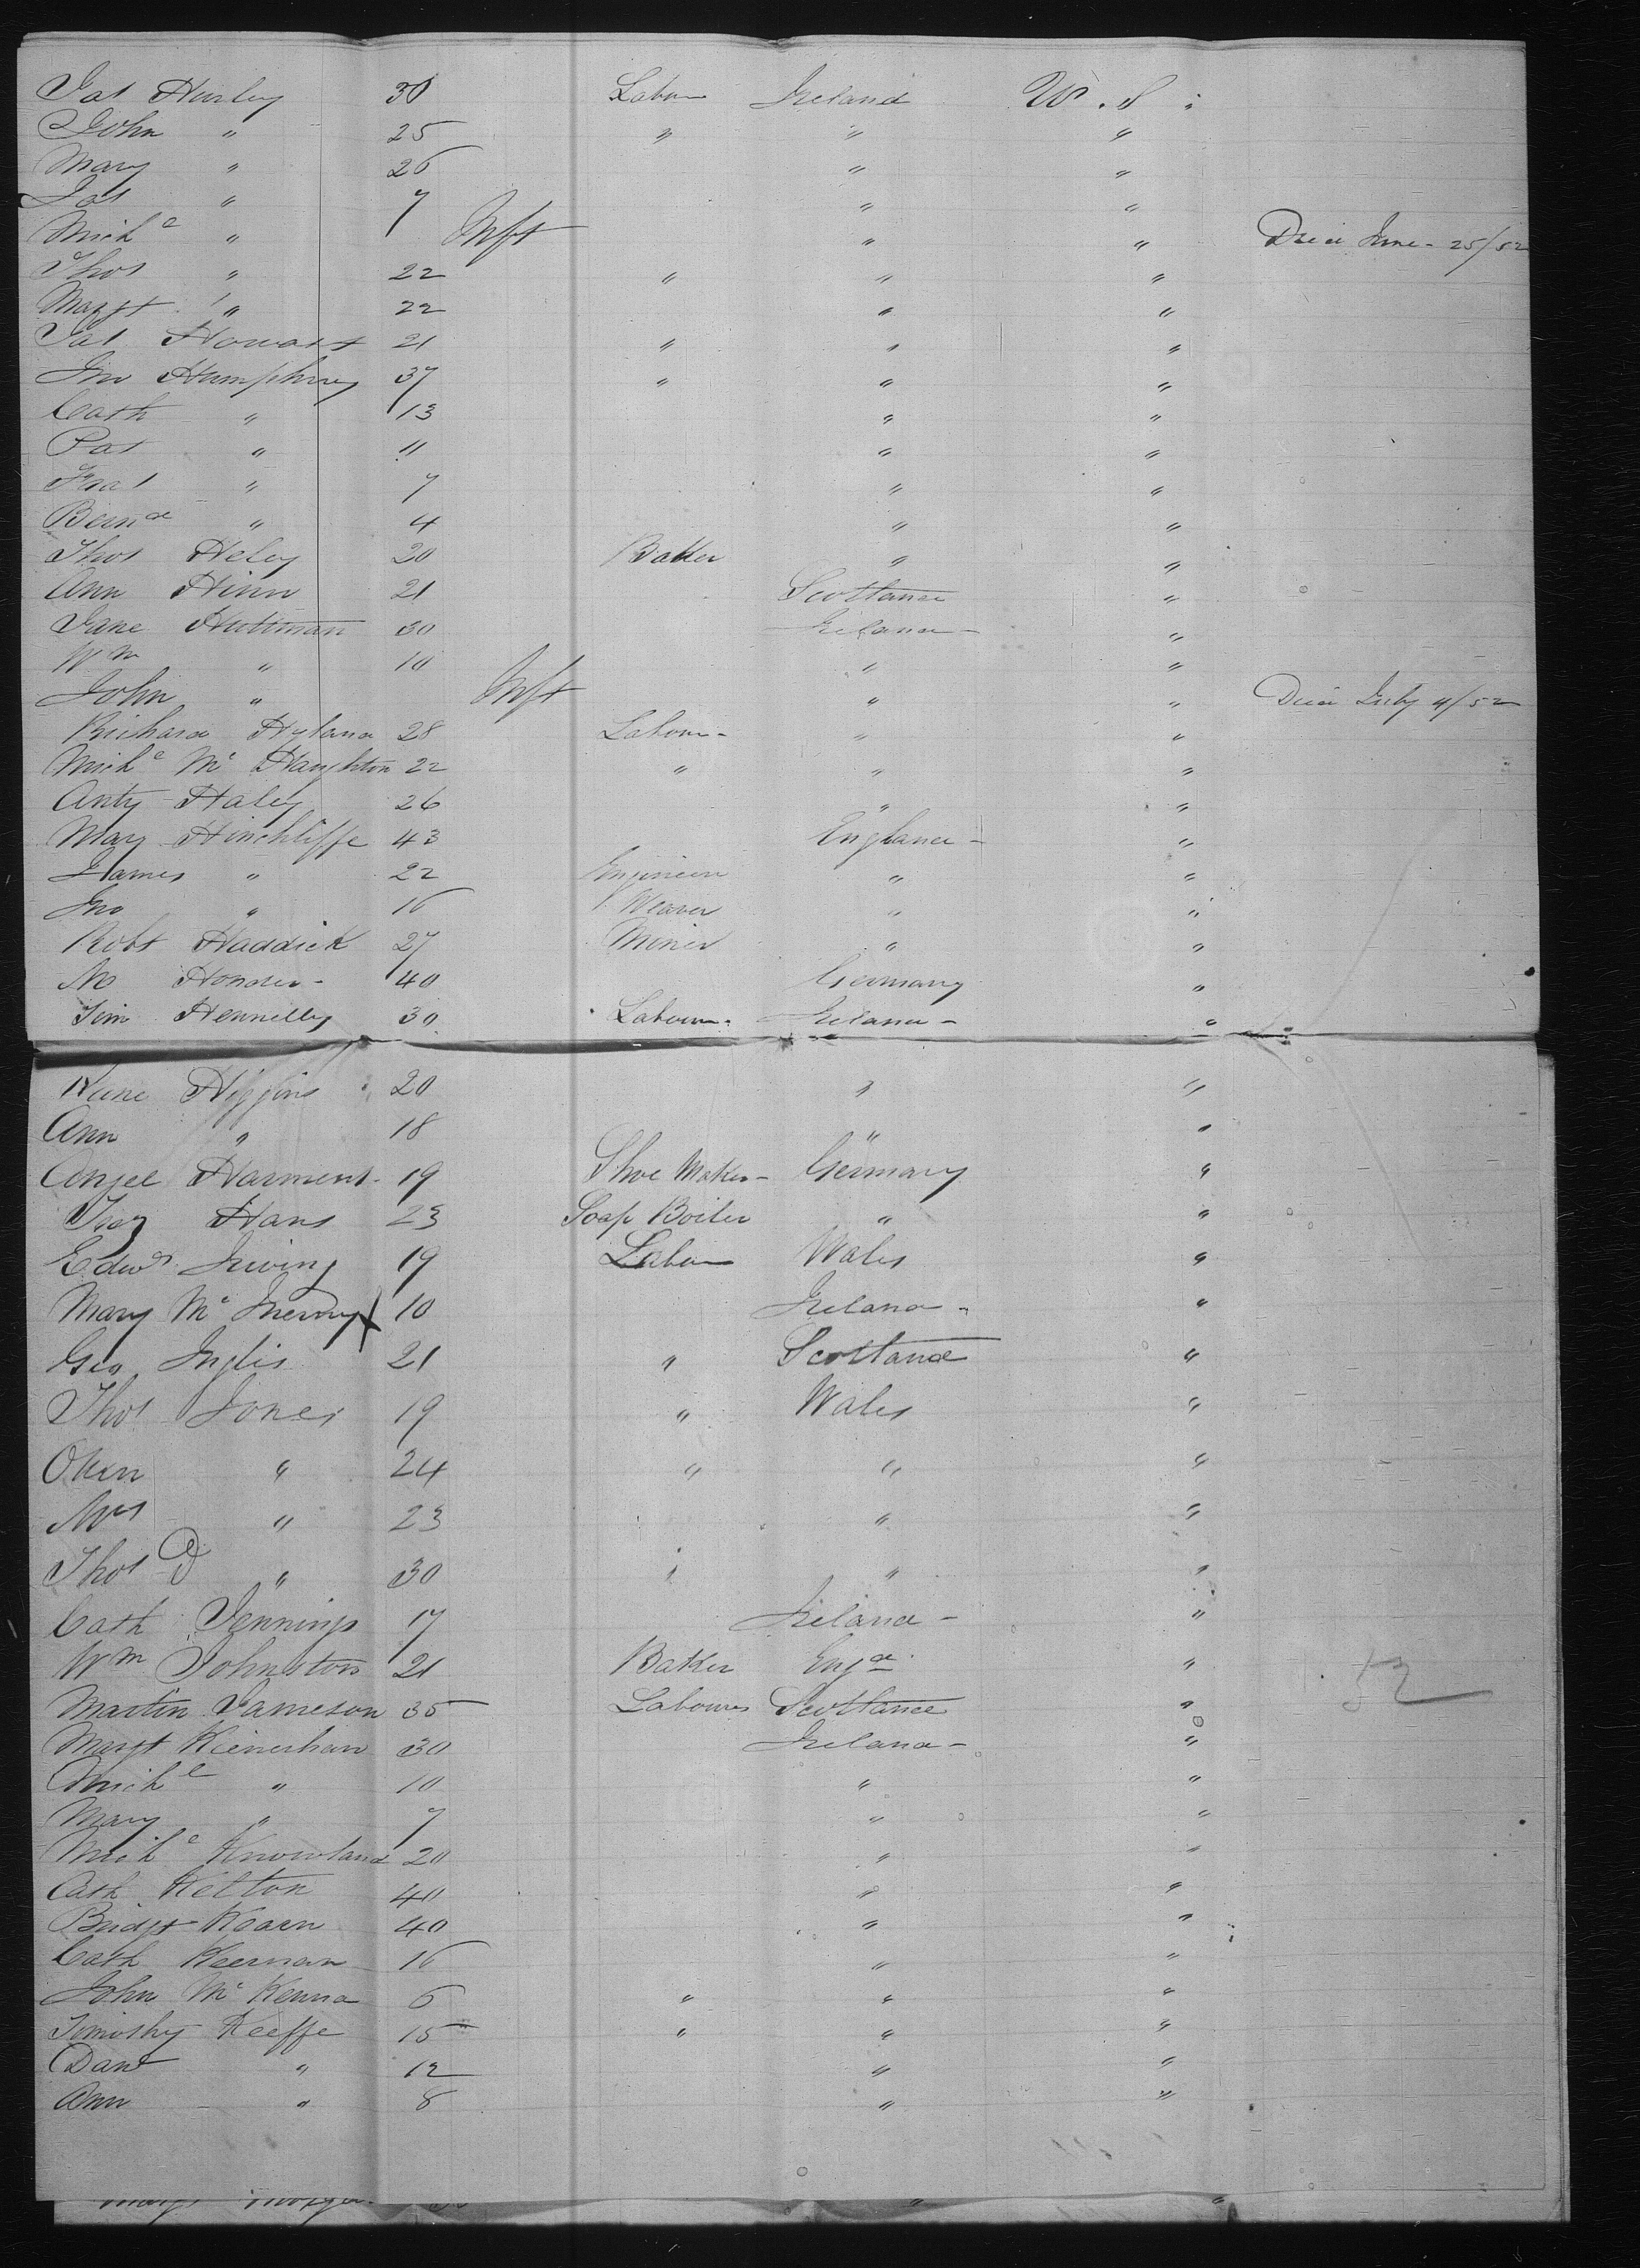 Pat Hurley 30 Labour Ireland U. S.
John " 25 " " "
Mary " 26 " "
Pat " 7 " "
Michl " Inft " " Died June - 25/52
Thos " 22 " " "
Margt " 22 " "
Pat Howard 21 " " "
Jno Humphrey 37 " " "
Cath " 13 " "
Pat " 11 " "
" 7 " "
Bernd " 4 " "
Thos Heley 20 Baker " "
Ann Hinn 21 Scotland "
Jane Huttman 30 Ireland "
Wm " 10 " "
John " Inft " " Died July 4/52
Richard Hyland 28 Labour " "
Michl Mc Haughton 22 " " "
Anty Haley 26 " "
Mary Hinchliffe 43 England "
James " 22 Engineer " "
Jno " 16 Weaver " "
Robt Haddick 27 Miner " "
40 Germany "
Tim Hennelly 30 Labour Ireland "
Higgins 20 " "
Ann " 18 " "
19 Shoe Maker Germany "
Hans 23 Soap Boiler " "
Edwd Irving 19 Labour Wales "
Mary Mc X 10 Ireland "
Geo Inglis 21 " Scotland "
Thos Jones 19 " Wales "
Owen " 24 " " "
Mrs " 23 " "
Thos D " 30 " " "
Cath Jennings 17 Ireland "
Wm Johnston 21 Baker Engd "
Martin Jameson 35 Labourer Scotland " 52
Margt Kienerhan 30 Ireland "
Michl " 10 " "
Mary " 7 " "
Michl Knowland 20 " "
Cath Kelton 40 " "
Bridgt Kearn 40 " "
Cath Keernan 16 " "
John Mc Kenna 6 " " "
Timothy Keeffe 15 " " "
Danl " 12 " "
Ann " 8 " "